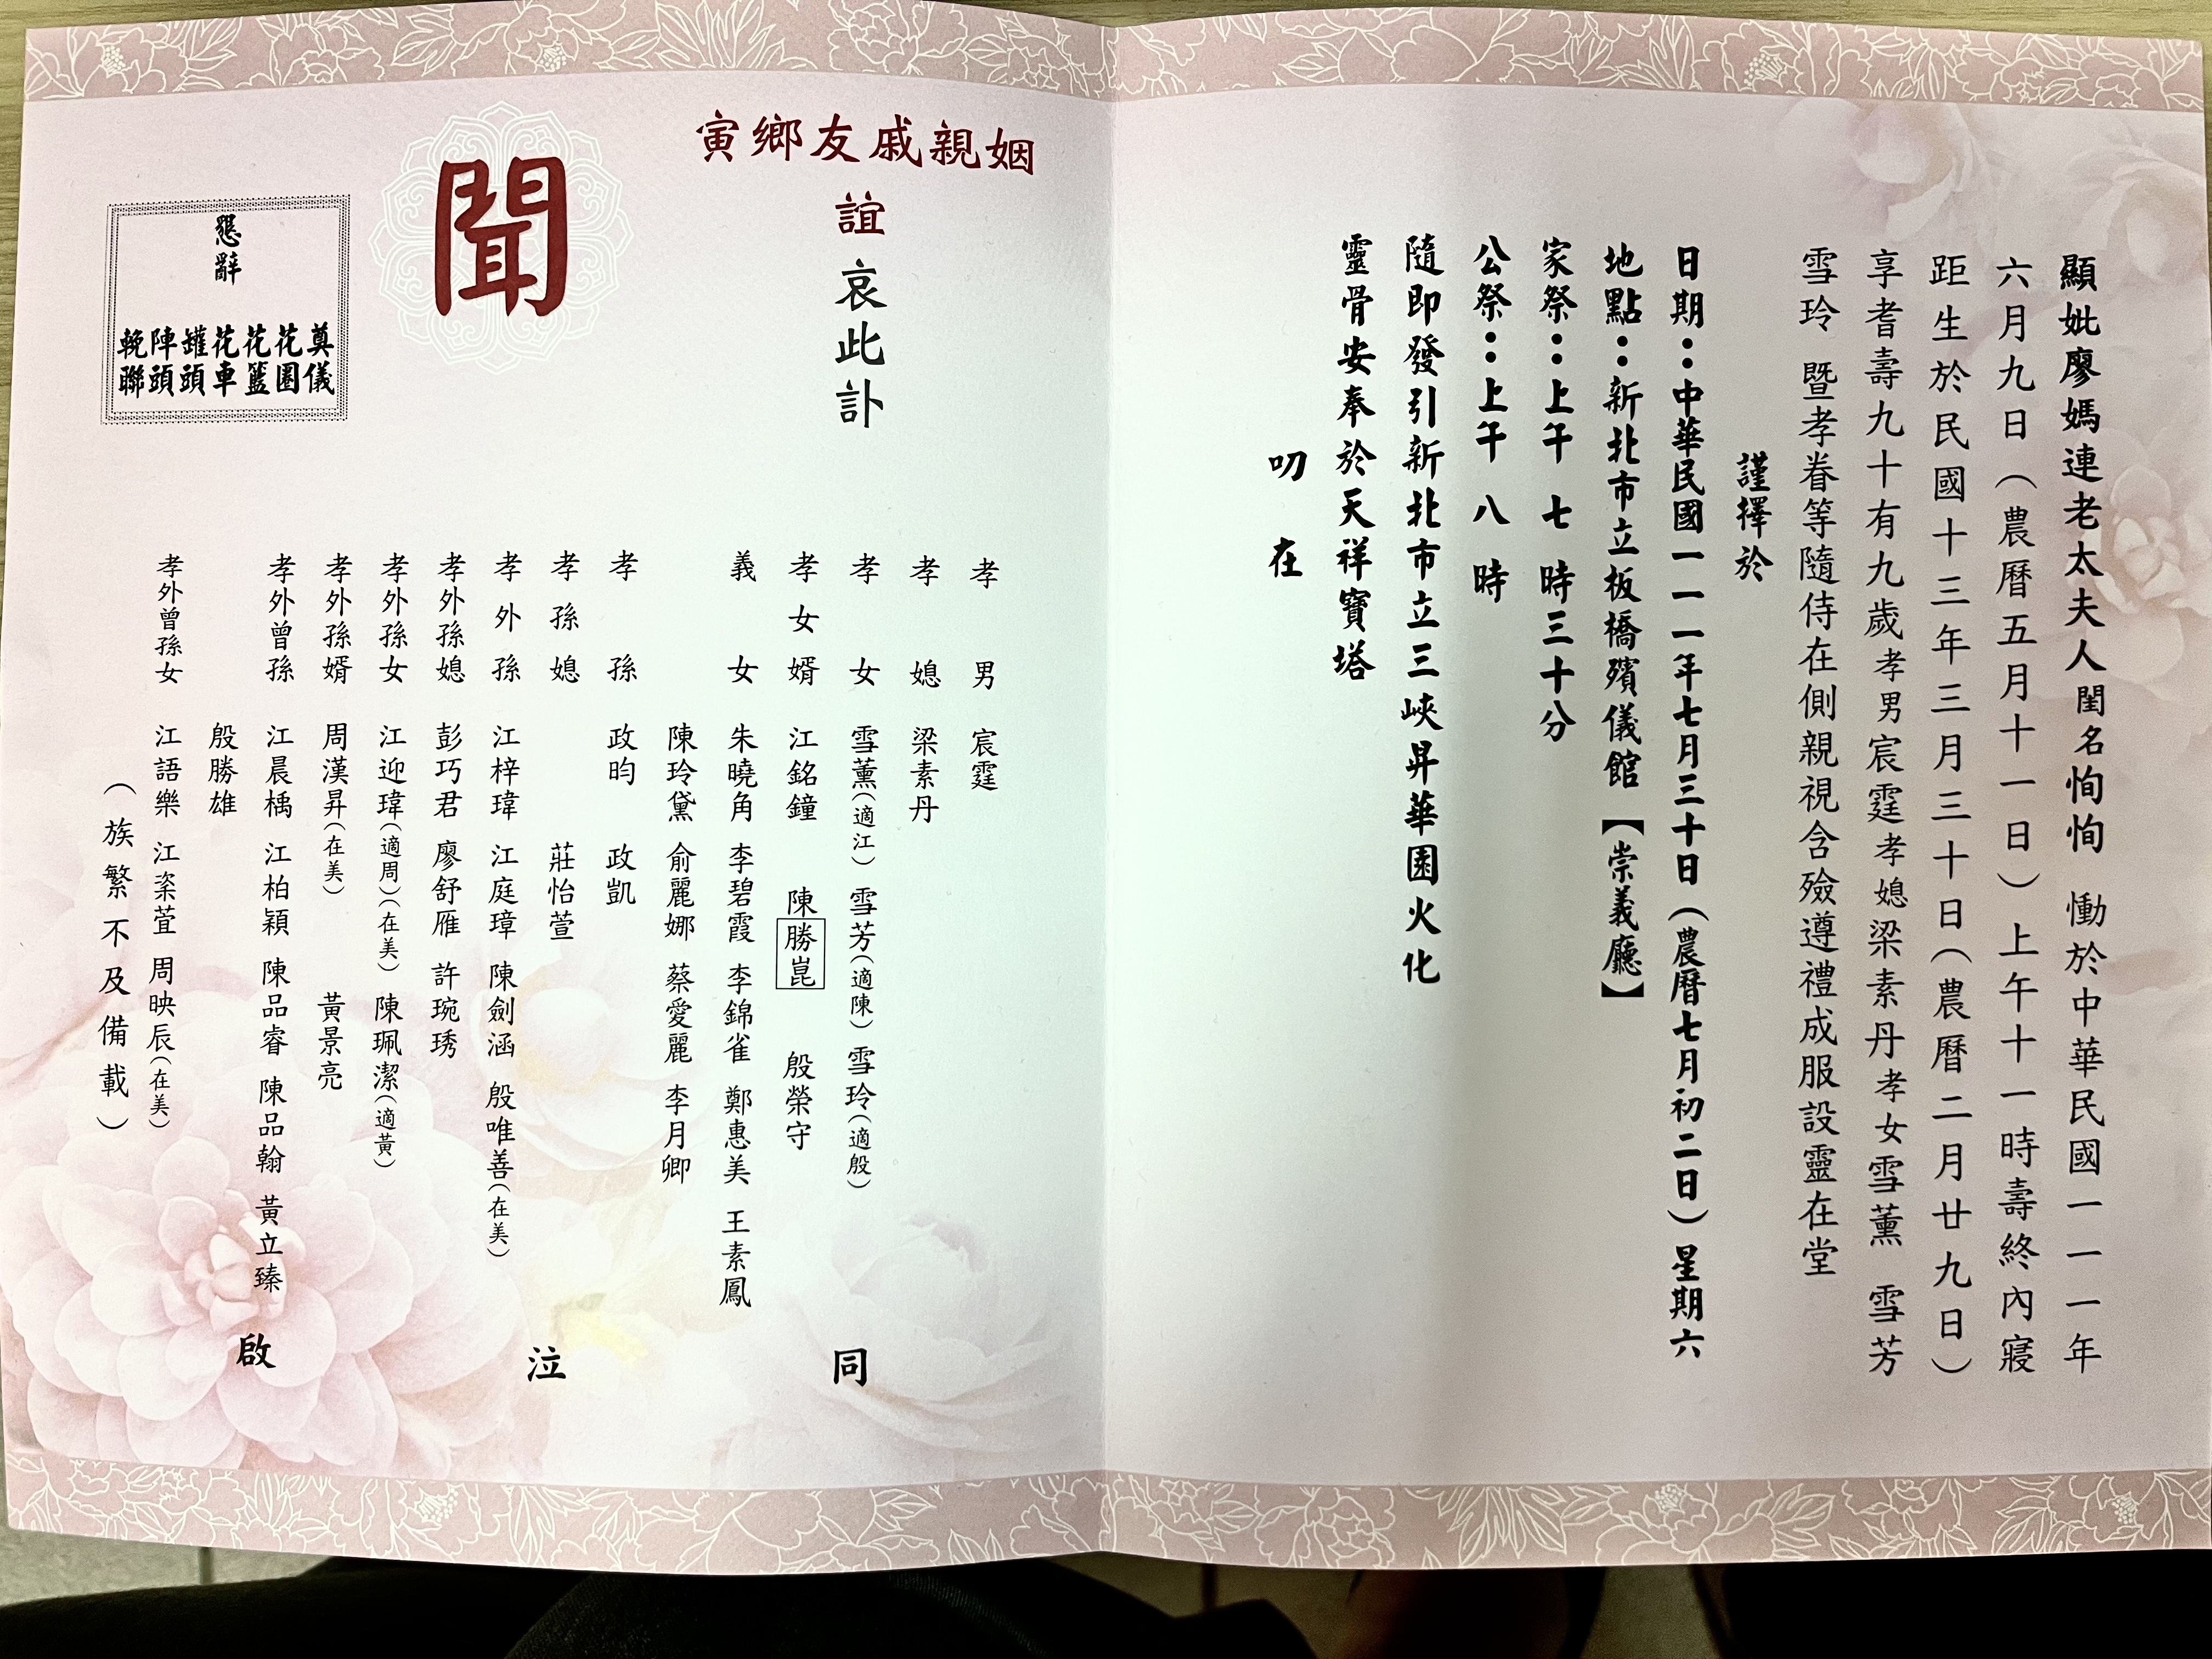 顯妣廖媽連老太夫人閨名恂恂 慟於中華民國一一一年
六月九日（農曆五月十一日）上午十一時壽終內寢
距生於民國十三年三月三十日（農曆二月廿九日）
享耆壽九十有九歲孝男宸霆孝媳梁素丹孝女雪薰 雪芳
雪玲 暨孝眷等隨侍在側親視含殮遵禮成服設靈在堂
謹擇於
日期：中華民國一一一年七月三十日（農曆七月初二日）星期六
地點：新北市立板橋殯儀館【崇義廳】
家祭：上午 七 時三十分
公祭：上午 八 時
隨即發引新北市立三峽昇華園火化
靈骨安奉於天祥寶塔
叨 在
寅鄉友戚親姻
誼 哀此訃
聞
孝男 宸霆
孝媳 梁素丹
孝女 雪薰（適江） 雪芳（適陳） 雪玲（適殷）
孝女婿 江銘鐘 陳勝崑 殷榮守
義女 朱曉角 李碧霞 李錦雀 鄭惠美 王素鳳
陳玲黛 俞麗娜 蔡愛麗 李月卿
孝孫 政昀 政凱
孝孫媳 莊怡萱
孝外孫 江梓瑋 江庭璋 陳劍涵 殷唯善（在美）
孝外孫媳 彭巧君 廖舒雁 許琬琇
孝外孫女 江迎瑋（適周）（在美） 陳珮潔（適黃）
孝外孫婿 周漢昇（在美） 黃景亮
孝外曾孫 江晨楀 江柏穎 陳品睿 陳品翰 黃立臻
殷勝雄
孝外曾孫女 江語樂 江渁萓 周映辰（在美）
（族繁不及備載）
同 泣 啟
懇辭
奠儀
花圈
花籃
花車
罐頭
陣頭
輓聯